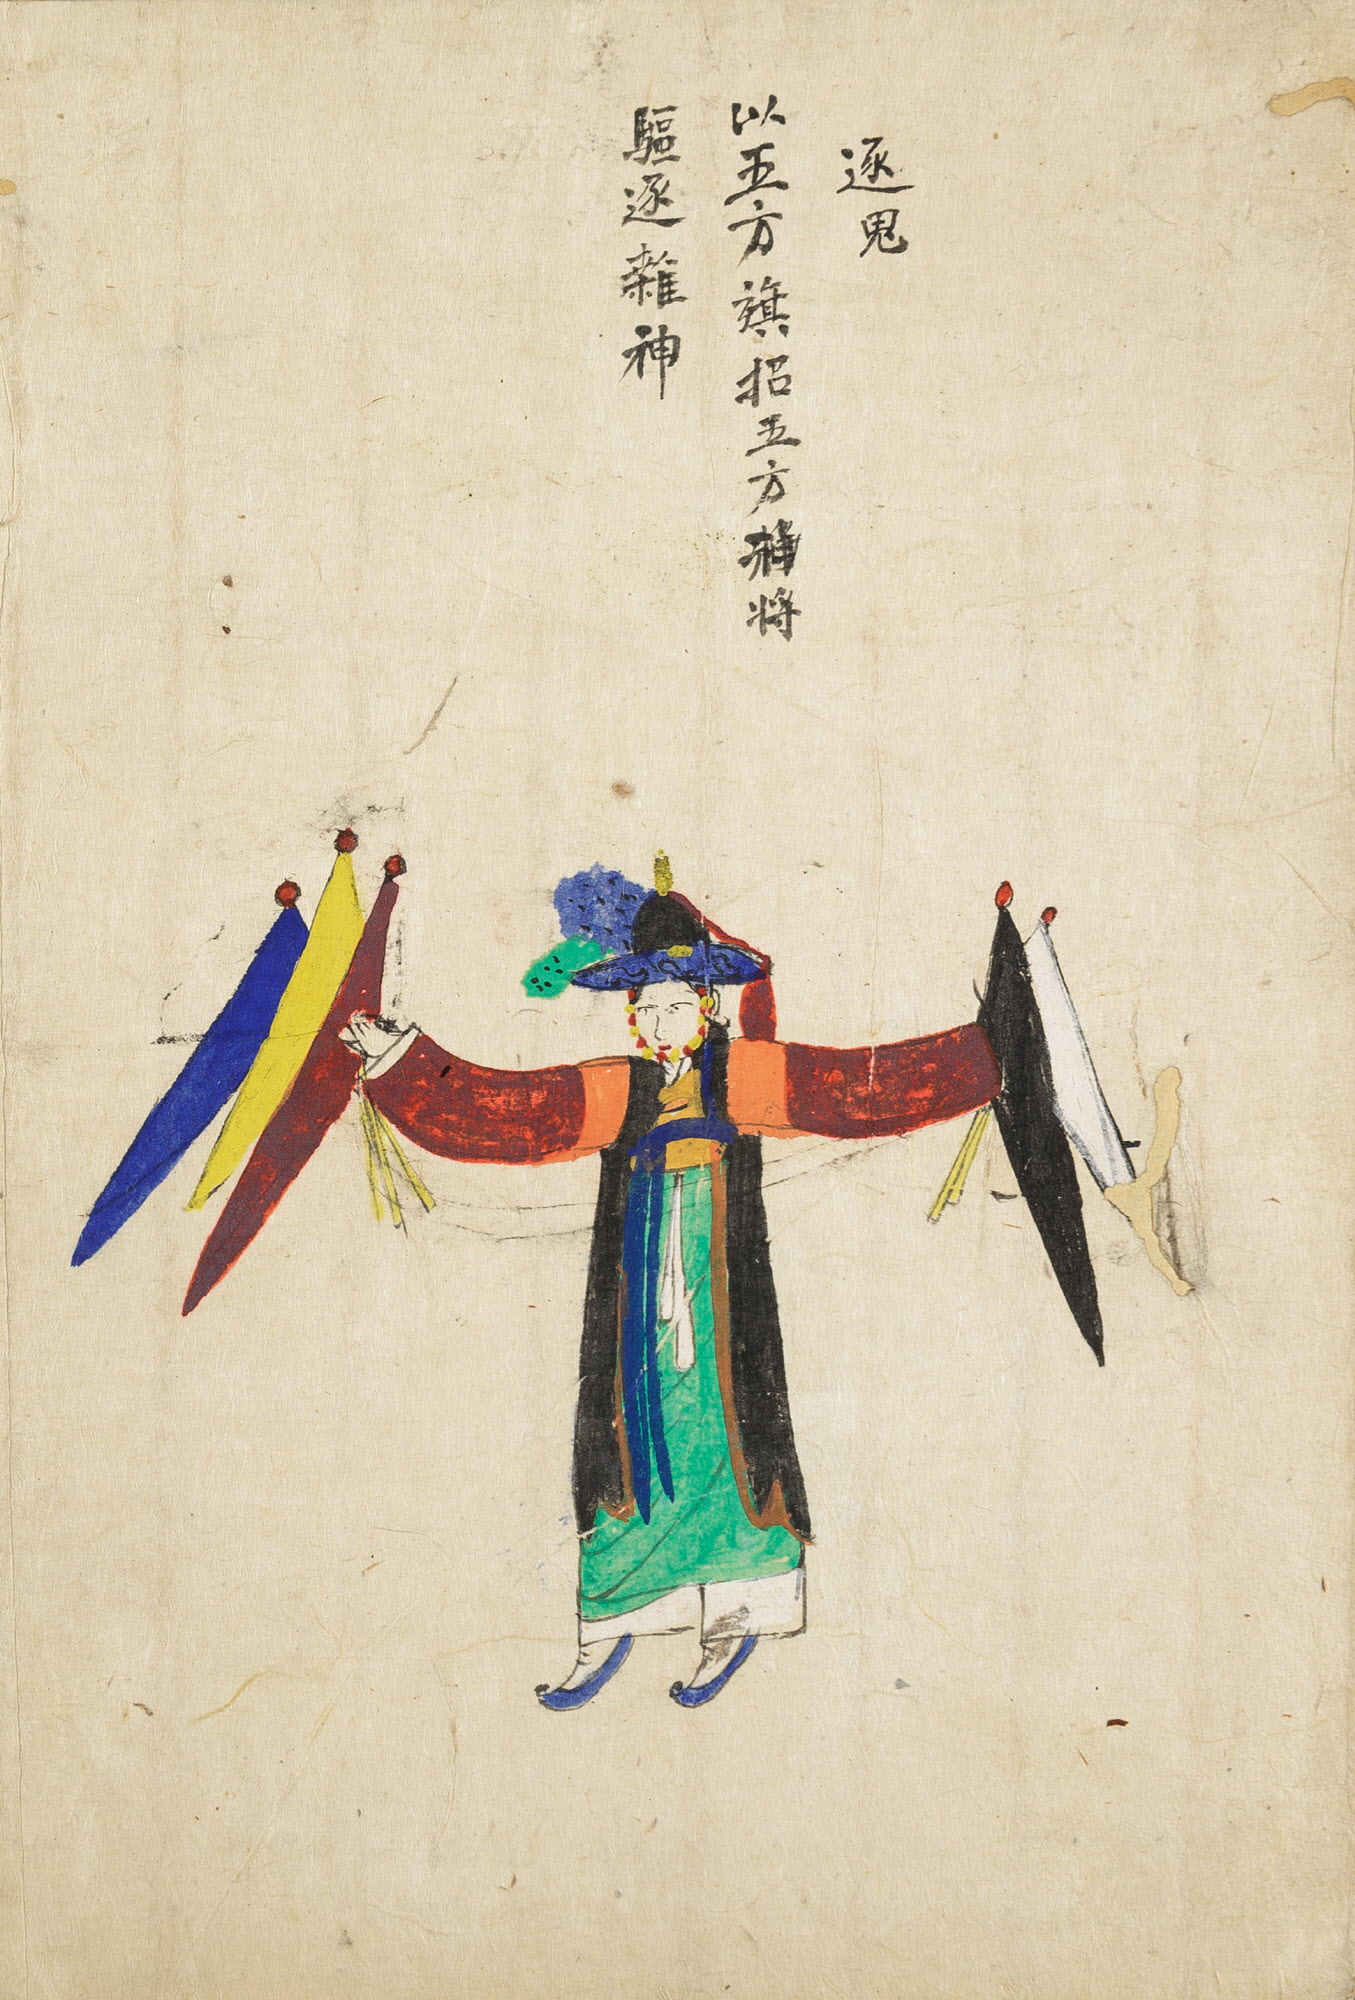 逐鬼
以五方旗招五方神将
驅逐雜神